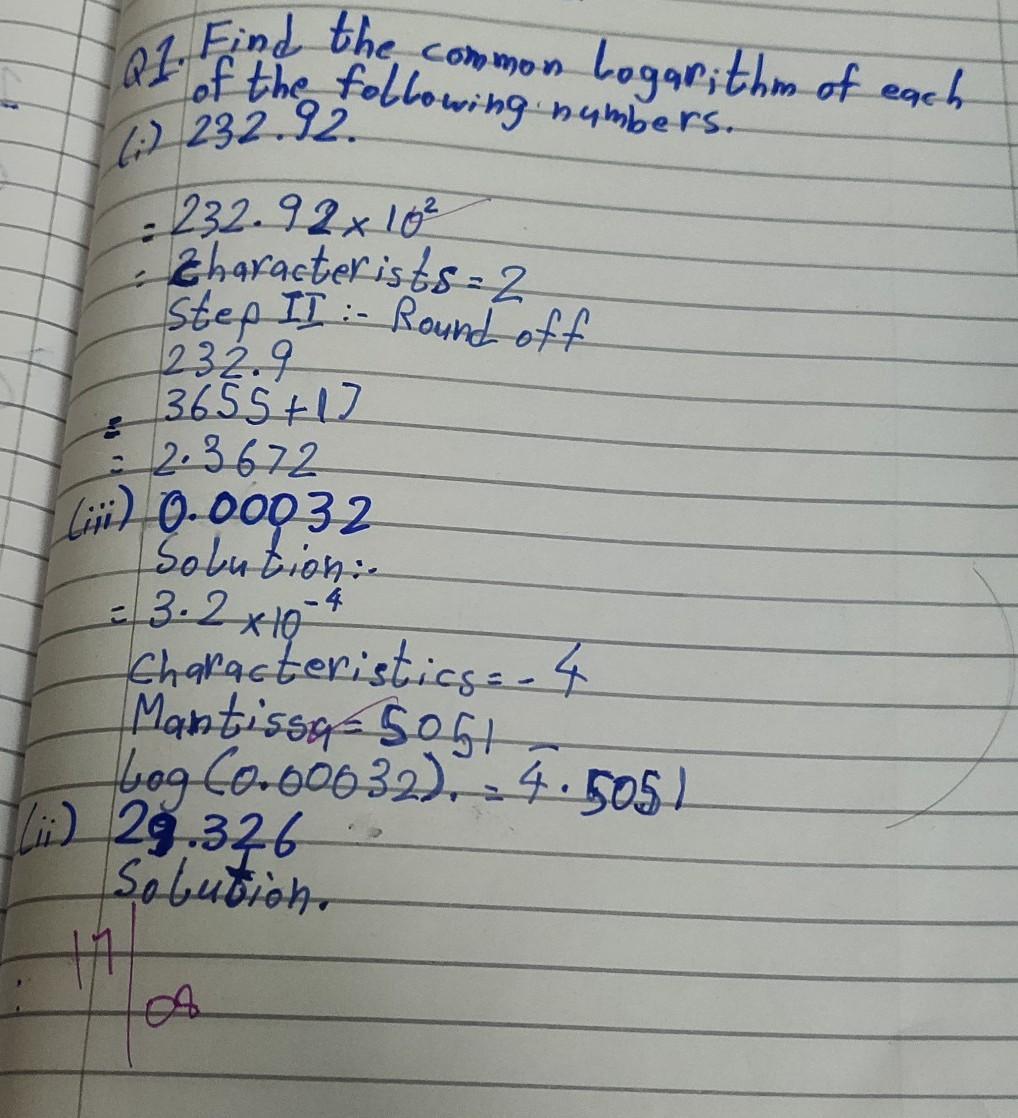 Q1. Find the common logarithm of each
of the following numbers.
(i) 232.92.
= 232.92 x 10²
= Characterists = 2
Step II :- Round off
232.9
= 3655 + 17
= 2.3672
(iii) 0.00032
Solution:-
= 3.2 x 10⁻⁴
Characteristics = - 4
Mantissa = 5051
log (0.00032). = 4̅.5051
(ii) 29.326
Solution.
17
08